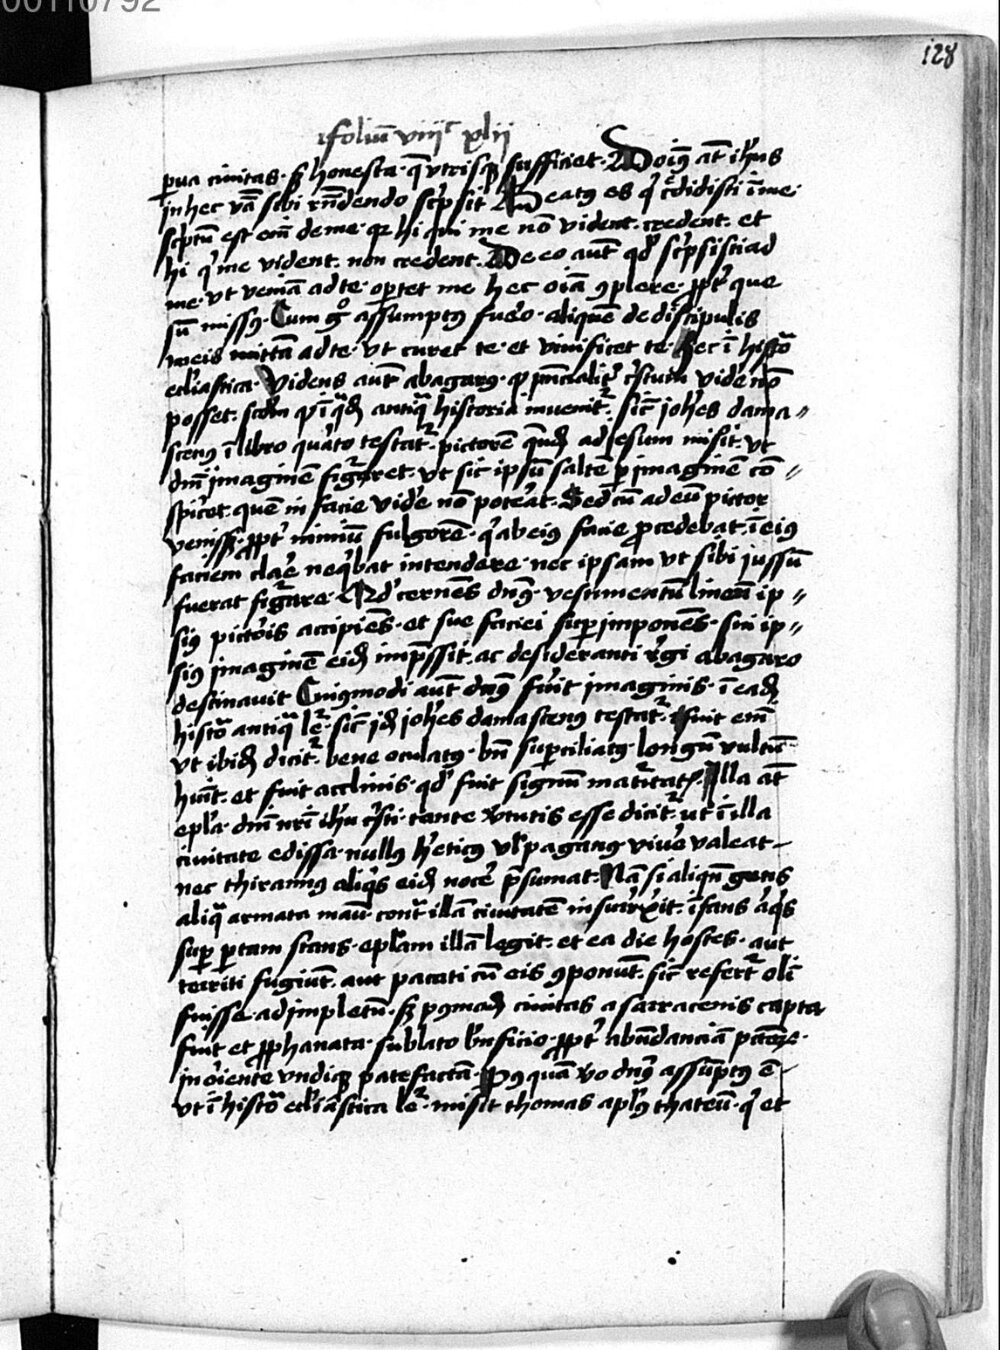 00110792
128
foliu᷒ viiijᶜ xlii
ꝑua ciuitas · sꝫ honesta · q̄ vtrisqꝫ sufficiet · Doīꝰ at̄ ih̄us
in hec v̄a sibi rn̄dendo sc̓psit Beatꝰ es q̓ c̓didisti ī me ·
sc̓ptū est em̄ de me · qꝛ hi qui me nō vident · credent · et
hi q̓ me vident · non credent · De eo aut̄ qd̓ sc̓psisti ad
me · vt veniā ad te · oꝑtet me hec oīa ꝯplere · ꝓpt̓ que
sū missꝰ · Cum gͦ assumptꝰ fue̓o · aliquē de discipulis
meis mittā ad te · vt curet te · et viuificet te · hec ī histō
eccl̓iastica · Videns aut̄ abagarꝰ · ꝙ pn̄cialit̓ cristum vide̓ nō
posset · ī q̄dā antiq̄ historia inuenit᷑ · sic̄ joh̓es dama〃
scenꝰ ī libro qua̓to testat᷑ · pictorē quēdā ad jesum misit · vt
dn̄i imaginē figuraret · vt sic ipsū saltē ꝑ imaginē cō〃
spic̓et · quē in facie vide̓ nō pote̓at · Sed cū ad eū pictor
venissꝫ · ꝓpt̓ nimiū fulgorē · q̓ ab eiꝰ facie ꝓcedebat · ī eiꝰ
faciem clare̓ neq̓bat intendere · nec ipsam vt sibi jussū
fuerat figurare · Qd̓ cernēs dn̄ꝰ · vestimentū lineū ip〃
siꝰ picto̓is accipiēs · et sue faciei suꝑimponēs · sui ip〃
siꝰ jmaginē eidē imp̄ssit · ac desideranti r̓gi abagaro
destinauit Cuiꝰmodi aut̄ dn̄ꝰ fu̓it jmaginis · ī eadē
histō antiq̄ le᷑ · sic̄ jdē joh̓es damascenꝰ testat᷑ · fuit em̄
vt ibidē dicit᷑ · bene oculatꝰ · bn̄ suꝑciliatꝰ · longū vultū
hūit · et fuit acclinis · qd̓ fuit signū matu̓itatꝭ · Illa at̄
epl̓a · dn̄i nr̄i ih̓u c̓sti · tante v̓tutis esse dicit᷑ · ut ī illa
ciuitate edissa · nullꝰ he̓ticꝰ vl̓ paganꝰ viue̓ valeat
nec thirannꝰ aliq̓s eidē noce̓ p̄sumat · Nā si aliqn̄ gens
aliq̄ armata manu · cont̓ illā ciuitatē insurrexit · īfans aliq̓s
suꝑ portam stans · epl̓am illā legit · et ea die hostes · aut
territi fugiūt · aut pacati cū eis ꝯponūt · sic̄ refert᷑ olī
fuisse · adimpletū · sꝫ pꝰmodū ciuitas a sarracenis capta
fuit et ꝓphanata · sublato bn̄ficio · ꝓpt̓ abūdanciā pc̄cōꝝ ·
in oriente vndiqꝫ patefactā · Pꝰquā v̓o dn̄ꝰ assūptꝰ ē
vt ī histō eccl̓iastica le᷑ · misit thomas apl̓ꝰ thateū · q̓ et